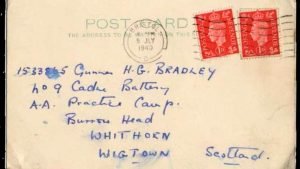 POST CARD
THE ADDRESS TO BE
5 JLY
1940
1533865 Gunner H.G. BRADLEY
No 9 Cadre Battery
A.A. Practice Camp.
Burrow Head
WHITHORN
WIGTOWN Scotland.